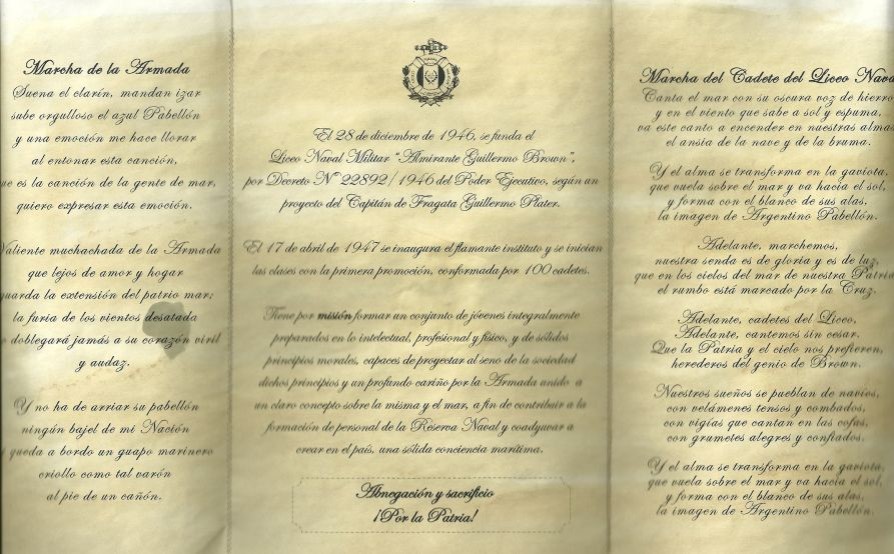 Marcha de la Armada
Suena el clarín, mandan izar
sube orgulloso el azul Pabellón
y una emoción me hace llorar
al entonar esta canción,
ue es la canción de la gente de mar,
quiero expresar esta emoción.
Valiente muchachada de la Armada
que lejos de amor y hogar
guarda la extensión del patrio mar;
la furia de los vientos desatada
o doblegará jamás a su corazón viril
y audaz.
Y no ha de arriar su pabellón
ningún bajel de mi Nación
i queda a bordo un guapo marinero
criollo como tal varón
al pie de un cañón.
El 28 de diciembre de 1946, se funda el
Liceo Naval Militar "Almirante Guillermo Brown",
por Decreto Nº 22892/1946 del Poder Ejecutivo, según un
proyecto del Capitán de Fragata Guillermo Plater.
El 17 de abril de 1947 se inaugura el flamante instituto y se inician
las clases con la primera promoción, conformada por 100 cadetes.
Tiene por misión formar un conjunto de jóvenes integralmente
preparados en lo intelectual, profesional y físico, y de sólidos
principios morales, capaces de proyectar al seno de la sociedad
dichos principios y un profundo cariño por la Armada unido a
un claro concepto sobre la misma y el mar, a fin de contribuir a la
formación de personal de la Reserva Naval y coadyuvar a
crear en el país, una sólida conciencia marítima.
Abnegación y sacrificio
¡Por la Patria!
Marcha del Cadete del Liceo Nava
Canta el mar con su oscura voz de hierro
y en el viento que sabe a sol y espuma,
va este canto a encender en nuestras almas
el ansia de la nave y de la bruma.
Y el alma se transforma en la gaviota,
que vuela sobre el mar y va hacia el sol,
y forma con el blanco de sus alas,
la imagen de Argentino Pabellón.
Adelante, marchemos,
nuestra senda es de gloria y es de luz,
que en los cielos del mar de nuestra Patria
el rumbo está marcado por la Cruz.
Adelante, cadetes del Liceo,
Adelante, cantemos sin cesar.
Que la Patria y el cielo nos prefieren,
herederos del genio de Brown.
Nuestros sueños se pueblan de navíos,
con velámenes tensos y combados,
con vigías que cantan en las cofas,
con grumetes alegres y confiados.
Y el alma se transforma en la gaviota,
que vuela sobre el mar y va hacia el sol,
y forma con el blanco de sus alas,
la imagen de Argentino Pabellón.